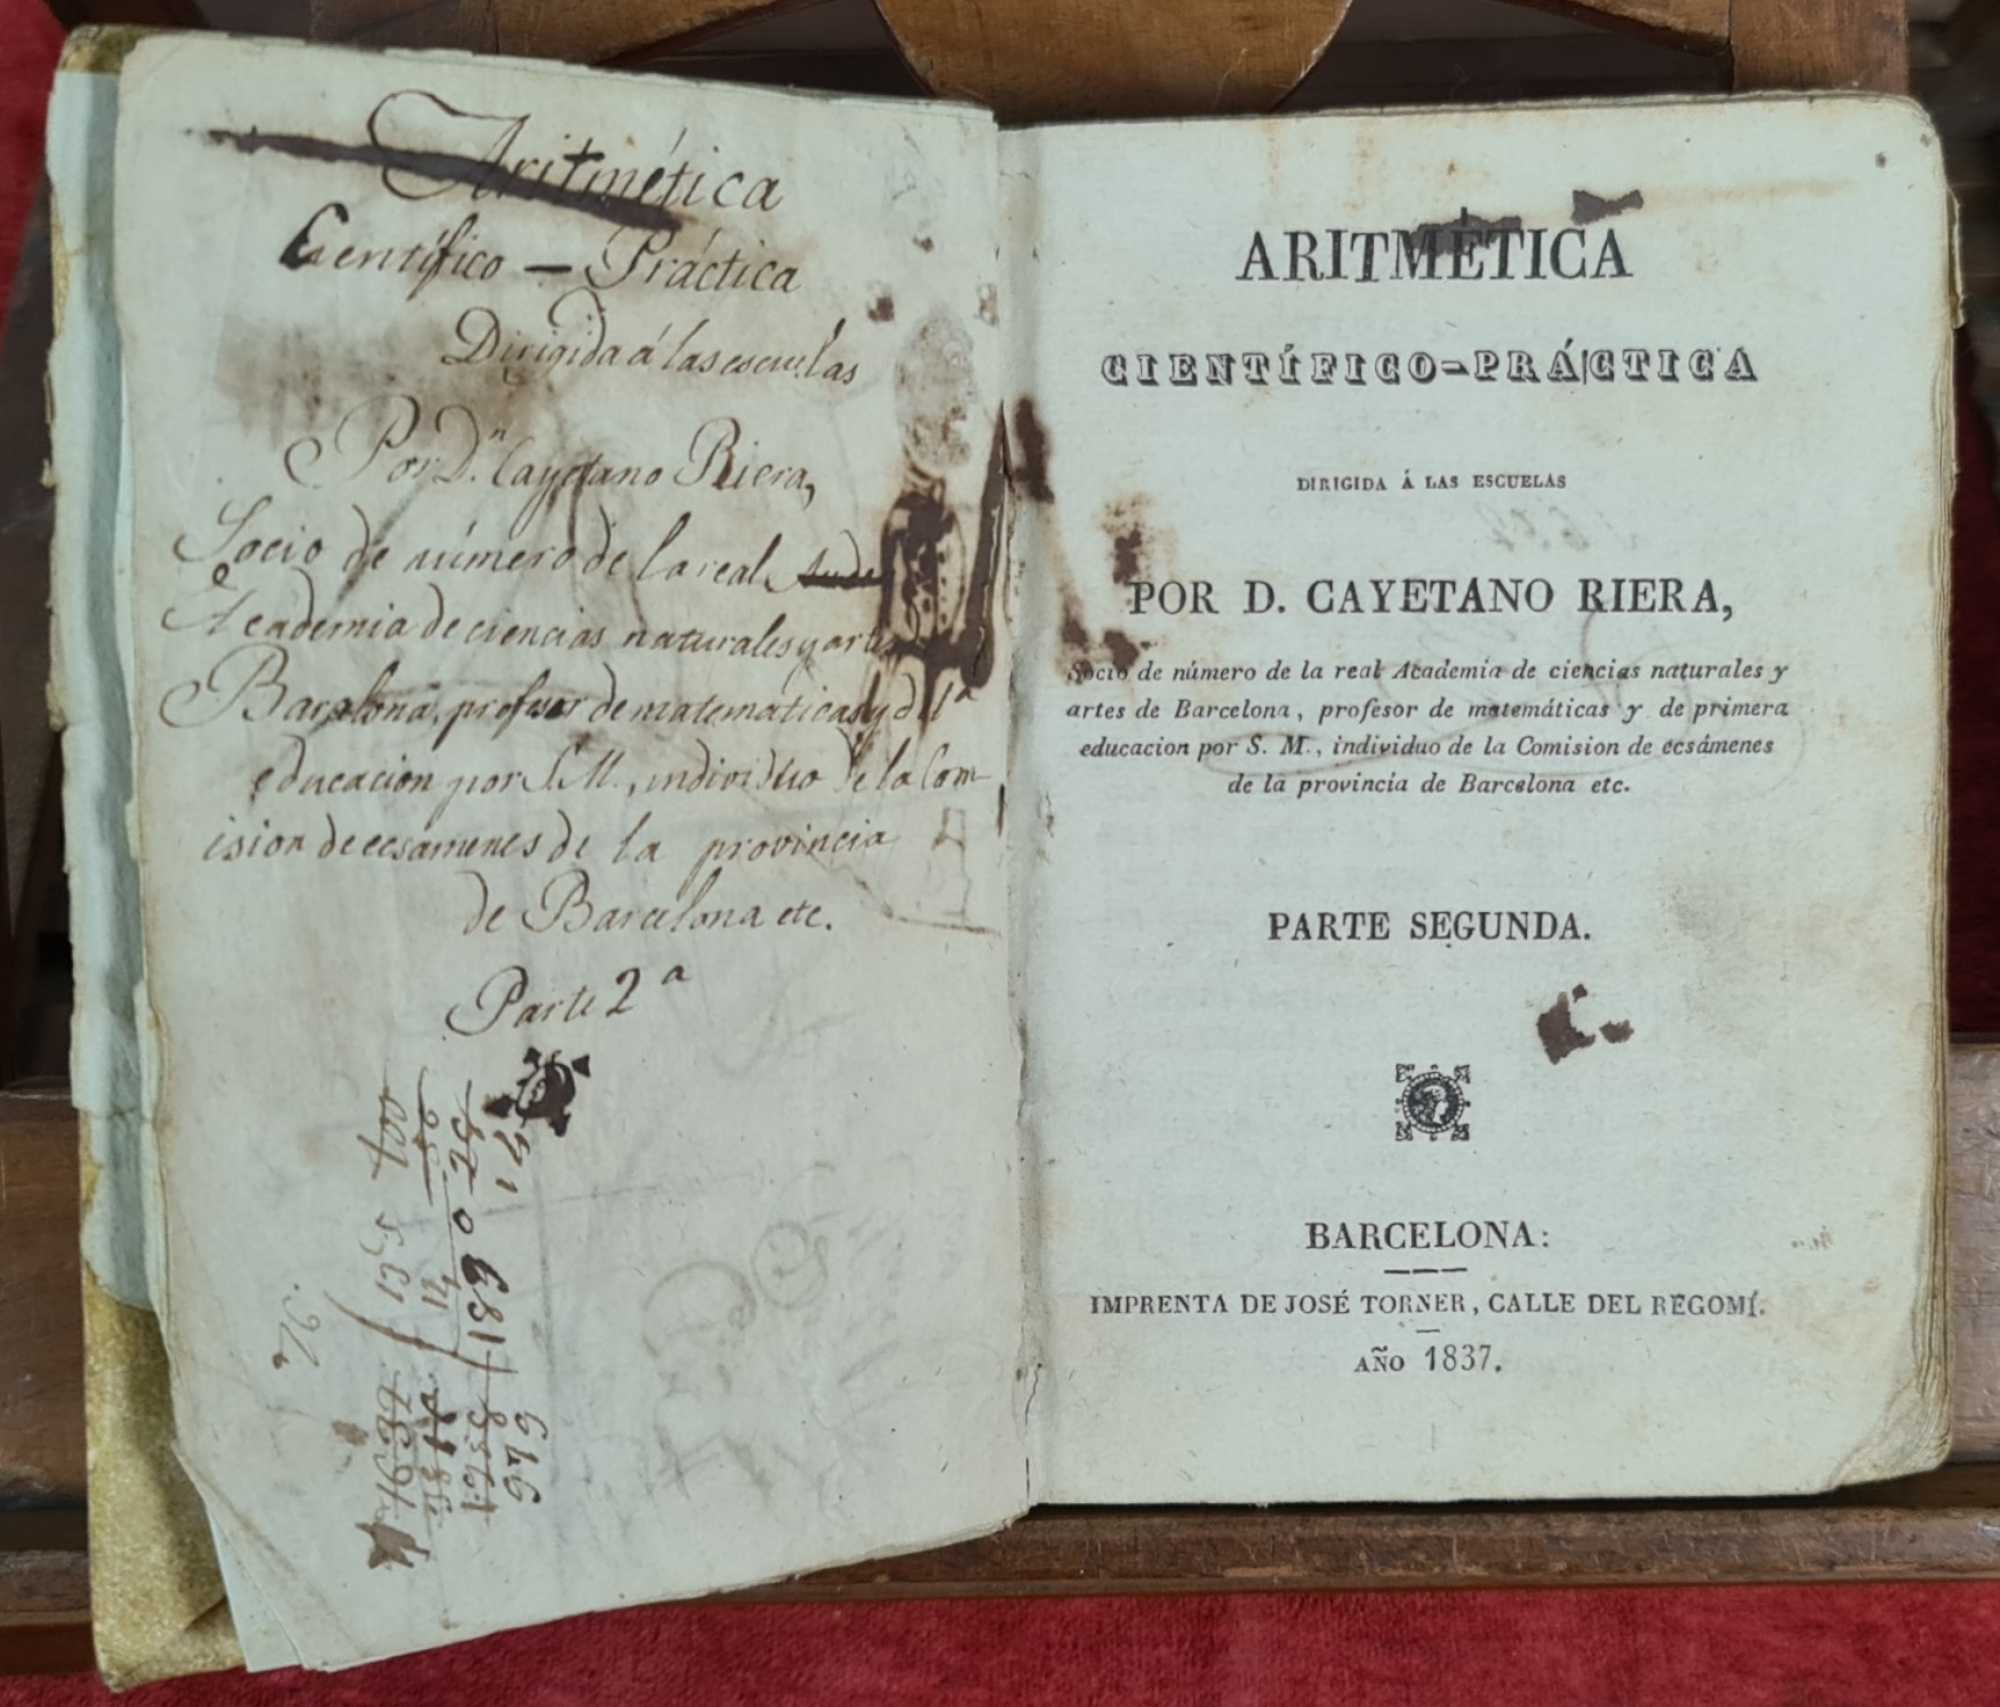 Aritmética
Científico - Práctica
Dirigida á las escuelas
Por D.n Cayetano Riera,
Socio de número de la real
Academia de ciencias naturales y artes
Barcelona, profesor de matematicas y d 1ª
educacion por S.M., individuo de la Com-
ision de ecsamenes de la provincia
de Barcelona etc.
Parte 2ª
ARITMÉTICA
CIENTÍFICO-PRÁCTICA
DIRIGIDA Á LAS ESCUELAS
POR D. CAYETANO RIERA,
Socio de número de la real Academia de ciencias naturales y
artes de Barcelona, profesor de matemáticas y de primera
educacion por S. M., individuo de la Comision de ecsámenes
de la provincia de Barcelona etc.
PARTE SEGUNDA.
BARCELONA:
IMPRENTA DE JOSÉ TORNER, CALLE DEL REGOMÍ.
AÑO 1837.